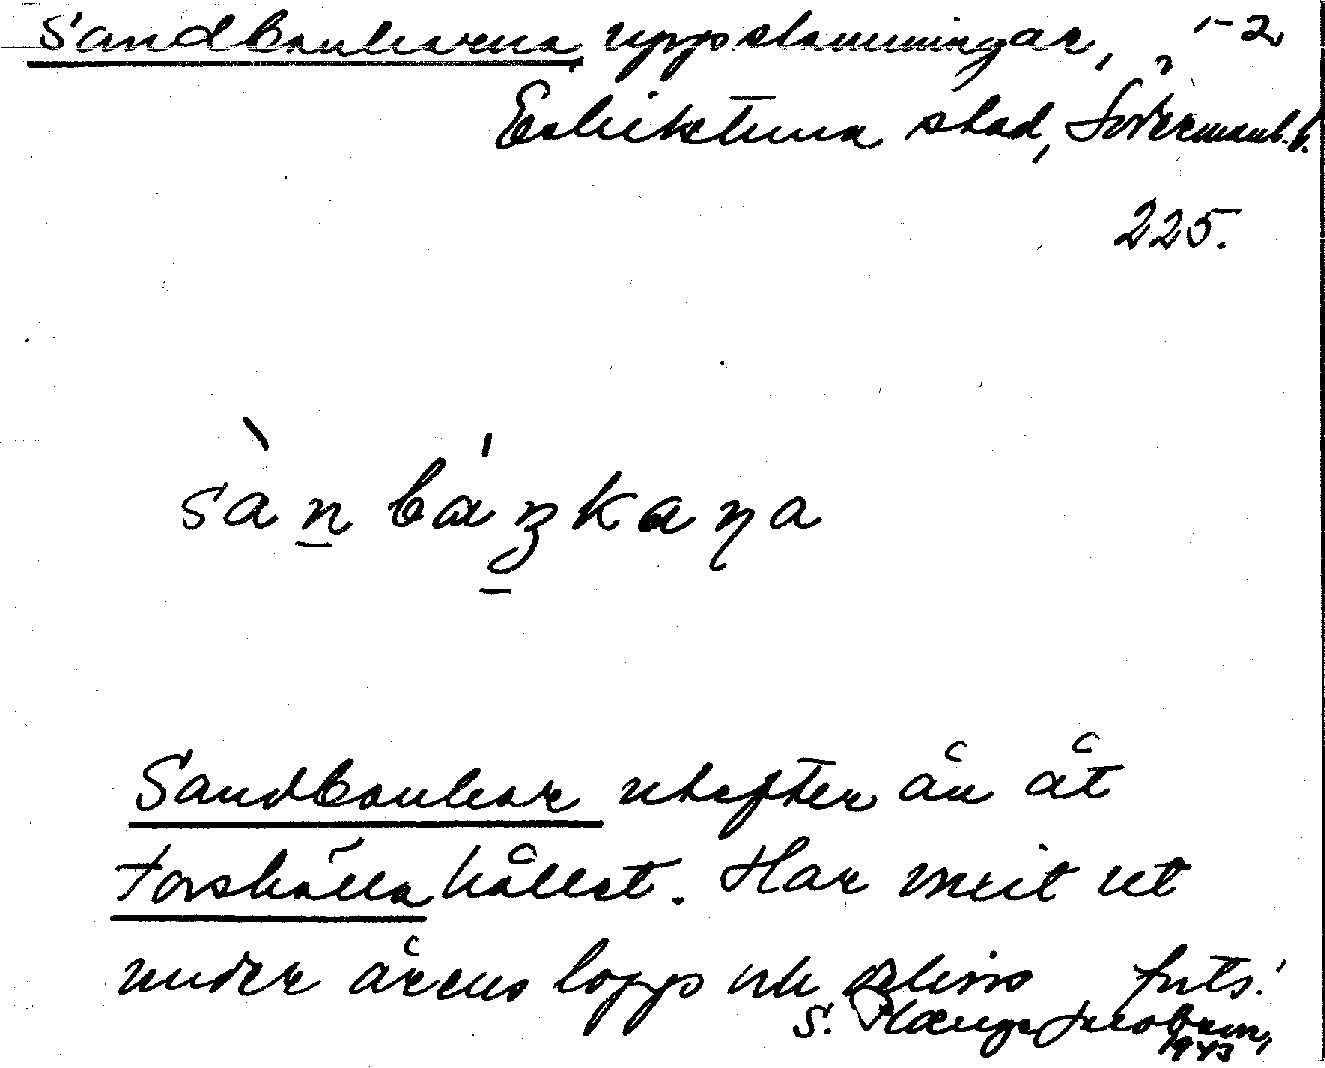 Sandbankarna, uppslamningar, 1-2,
Eskilstuna stad, Södermanl. l.
225.
sàn báŋkaɳa
Sandbankar utefter ån åt
Torshälla hållet. Har men ut
under årens lopp och forts.
S. Jacobson,
1943